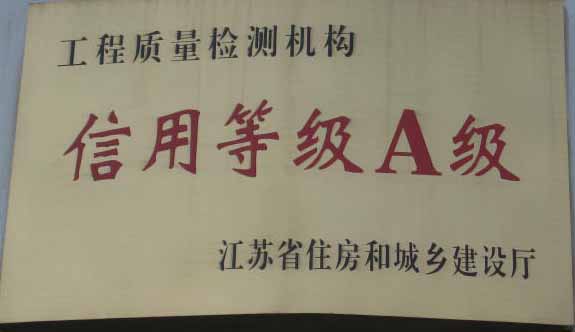 工程质量检测机构
信用等级A级
江苏省住房和城乡建设厅